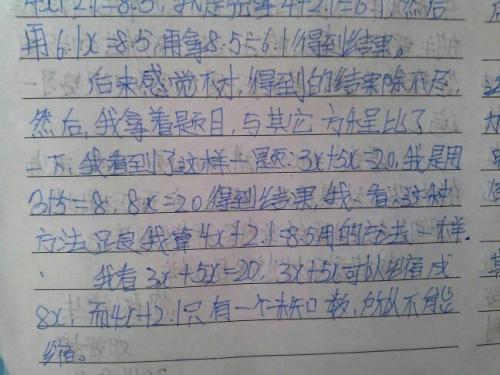 4x+2.1=8.5,我是先拿4+2.1=6.1,然后
用6.1x=8.5,再拿8.5÷6.1得到结果。
后来感觉不对,得到的结果除不尽,
然后,我拿着题目,与其它方程比了
一下,我看到了这样一题:3x+5x=20,我是用
3+5=8,8x=20得到结果,我一看:这种
方法是跟我拿4x+2.1=8.5用的方法一样.
我看3x+5x=20,3x+5x可以缩成
8x,而4x+2.1只有一个未知数,所以不能
缩。